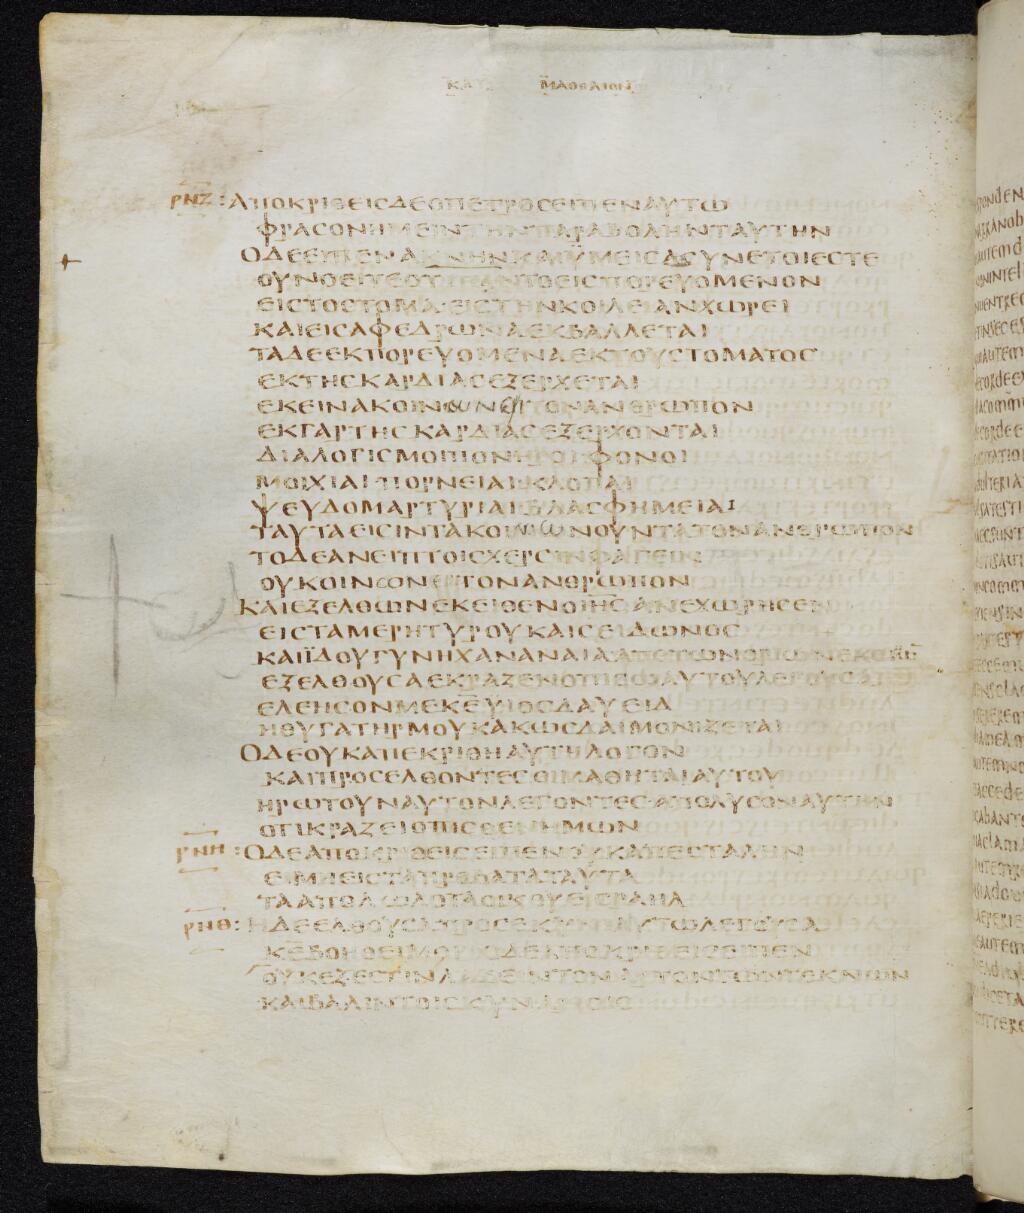 ΚΑΤ ΜΑΘΘΑΙΟΝ
ΡΝΖ : ΑΠΟΚΡΙΘΕΙΣΔΕΟΠΕΤΡΟΣΕΙΠΕΝΑΥΤΩ
ΦΡΑΣΟΝΗΜΕΙΝΤΗΝΠΑΡΑΒΟΛΗΝΤΑΥΤΗΝ
ΟΔΕΕΙΠΕΝΑΚΜΗΝΚΑΙΥΜΕΙΣΑΣΥΝΕΤΟΙΕΣΤΕ
ΟΥΝΟΕΙΤΕΟΤΙΠΑΝΤΟΕΙΣΠΟΡΕΥΟΜΕΝΟΝ
ΕΙΣΤΟΣΤΟΜΑΕΙΣΤΗΝΚΟΙΛΕΙΑΝΧΩΡΕΙ
ΚΑΙΕΙΣΑΦΕΔΡΩΝΑΕΚΒΑΛΛΕΤΑΙ
ΤΑΔΕΕΚΠΟΡΕΥΟΜΕΝΑΕΚΤΟΥΣΤΟΜΑΤΟΣ
ΕΚΤΗΣΚΑΡΔΙΑΣΕΞΕΡΧΕΤΑΙ
ΕΚΕΙΝΑΚΟΙΝΩΝΕΙΤΟΝΑΝΘΡΩΠΟΝ
ΕΚΓΑΡΤΗΣΚΑΡΔΙΑΣΕΞΕΡΧΟΝΤΑΙ
ΔΙΑΛΟΓΙΣΜΟΙΠΟΝΗΡΟΙΦΟΝΟΙ
ΜΟΙΧΙΑΙΠΟΡΝΕΙΑΙΚΛΟΠΑΙ
ΨΕΥΔΟΜΑΡΤΥΡΙΑΙΒΛΑΣΦΗΜΕΙΑΙ
ΤΑΥΤΑΕΙΣΙΝΤΑΚΟΙΝΩΝΟΥΝΤΑΤΟΝΑΝΘΡΩΠΟΝ
ΤΟΔΕΑΝΕΙΠΤΟΙΣΧΕΡΣΙΝΦΑΓΕΙΝ
ΟΥΚΟΙΝΩΝΕΙΤΟΝΑΝΘΡΩΠΟΝ
ΚΑΙΕΞΕΛΘΩΝΕΚΕΙΘΕΝΟΙΗΣΑΝΕΧΩΡΗΣΕΝ
ΕΙΣΤΑΜΕΡΗΤΥΡΟΥΚΑΙΣΕΙΔΩΝΟΣ
ΚΑΙΪΔΟΥΓΥΝΗΧΑΝΑΝΑΙΑΑΠΟΤΩΝΟΡΙΩΝΕΚΕΙΝ
ΕΞΕΛΘΟΥΣΑΕΚΡΑΖΕΝΟΠΙΣΩΑΥΤΟΥΛΕΓΟΥΣΑ
ΕΛΕΗΣΟΝΜΕΚΕΥΙΟΣΔΑΥΕΙΔ
ΗΘΥΓΑΤΗΡΜΟΥΚΑΚΩΣΔΑΙΜΟΝΙΖΕΤΑΙ
ΟΔΕΟΥΚΑΠΕΚΡΙΘΗΑΥΤΗΛΟΓΟΝ
ΚΑΙΠΡΟΣΕΛΘΟΝΤΕΣΟΙΜΑΘΗΤΑΙΑΥΤΟΥ
ΗΡΩΤΟΥΝΑΥΤΟΝΛΕΓΟΝΤΕΣΑΠΟΛΥΣΟΝΑΥΤΗΝ
ΟΤΙΚΡΑΖΕΙΟΠΙΣΘΕΝΗΜΩΝ
ΡΝΗ : ΟΔΕΑΠΟΚΡΙΘΕΙΣΕΙΠΕΝΟΥΚΑΠΕΣΤΑΛΗΝ
ΕΙΜΗΕΙΣΤΑΠΡΟΒΑΤΑΤΑΥΤΑ
ΤΑΑΠΟΛΩΛΟΤΑΟΙΚΟΥΕΙΣΡΑΗΛ
ΡΝΘ : ΗΔΕΕΛΘΟΥΣΑΠΡΟΣΕΚΥΝΙΑΥΤΩΛΕΓΟΥΣΑ
ΚΕΒΟΗΘΕΙΜΟΙΟΔΕΑΠΟΚΡΙΘΕΙΣΕΙΠΕΝ
ΟΥΚΕΞΕΣΤΙΝΛΑΒΕΙΝΤΟΝΑΡΤΟΝΤΩΝΤΕΚΝΩΝ
ΚΑΙΒΑΛΙΝΤΟΙΣΚΥΝΑΡΙΟΙΣ